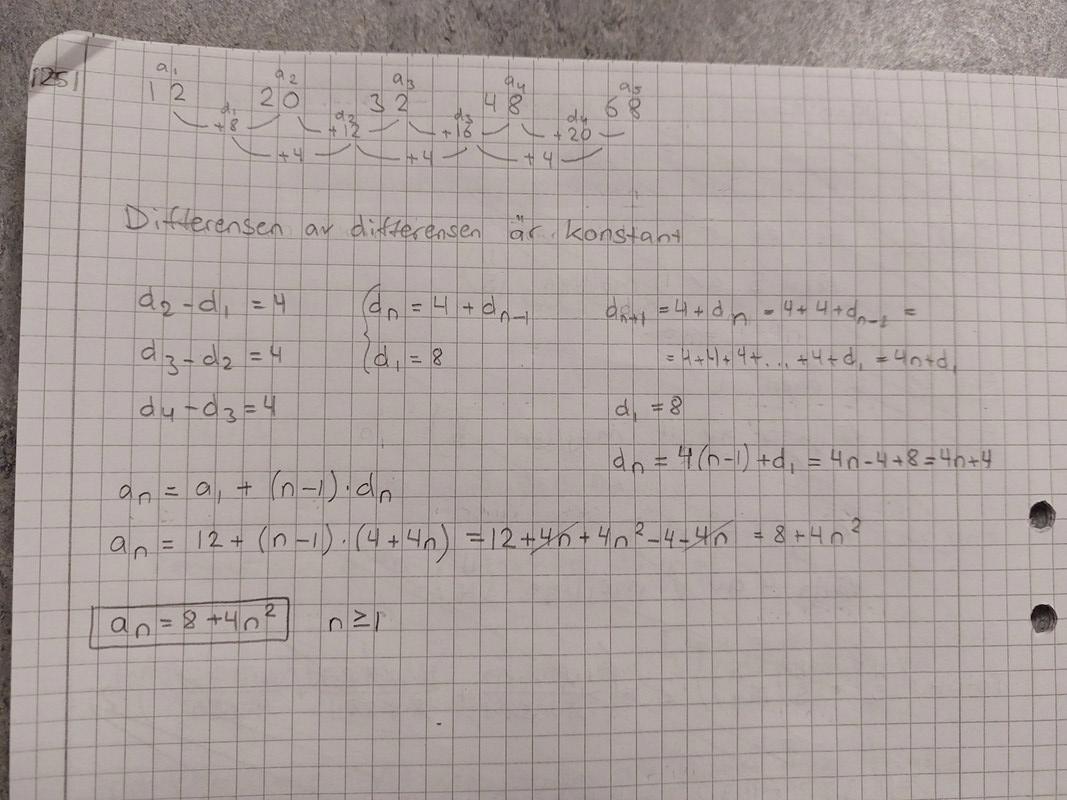 1251
a₁ a₂ a₃ a₄ a₅
12 20 32 48 68
d₁ d₂ d₃ d₄
+8 +12 +16 +20
+4 +4 +4
Differensen av differensen är konstant
d₂ - d₁ = 4
d₃ - d₂ = 4
d₄ - d₃ = 4
{ dₙ = 4 + dₙ₋₁
d₁ = 8
dₙ₊₁ = 4 + dₙ = 4 + 4 + dₙ₋₁ =
= 4+4+4+...+4+d₁ = 4n+d₁
d₁ = 8
dₙ = 4(n-1) + d₁ = 4n-4+8 = 4n+4
aₙ = a₁ + (n-1)·dₙ
aₙ = 12 + (n-1)·(4+4n) = 12 + 4n + 4n² - 4 - 4n = 8 + 4n²
aₙ = 8 + 4n² n ≥ 1